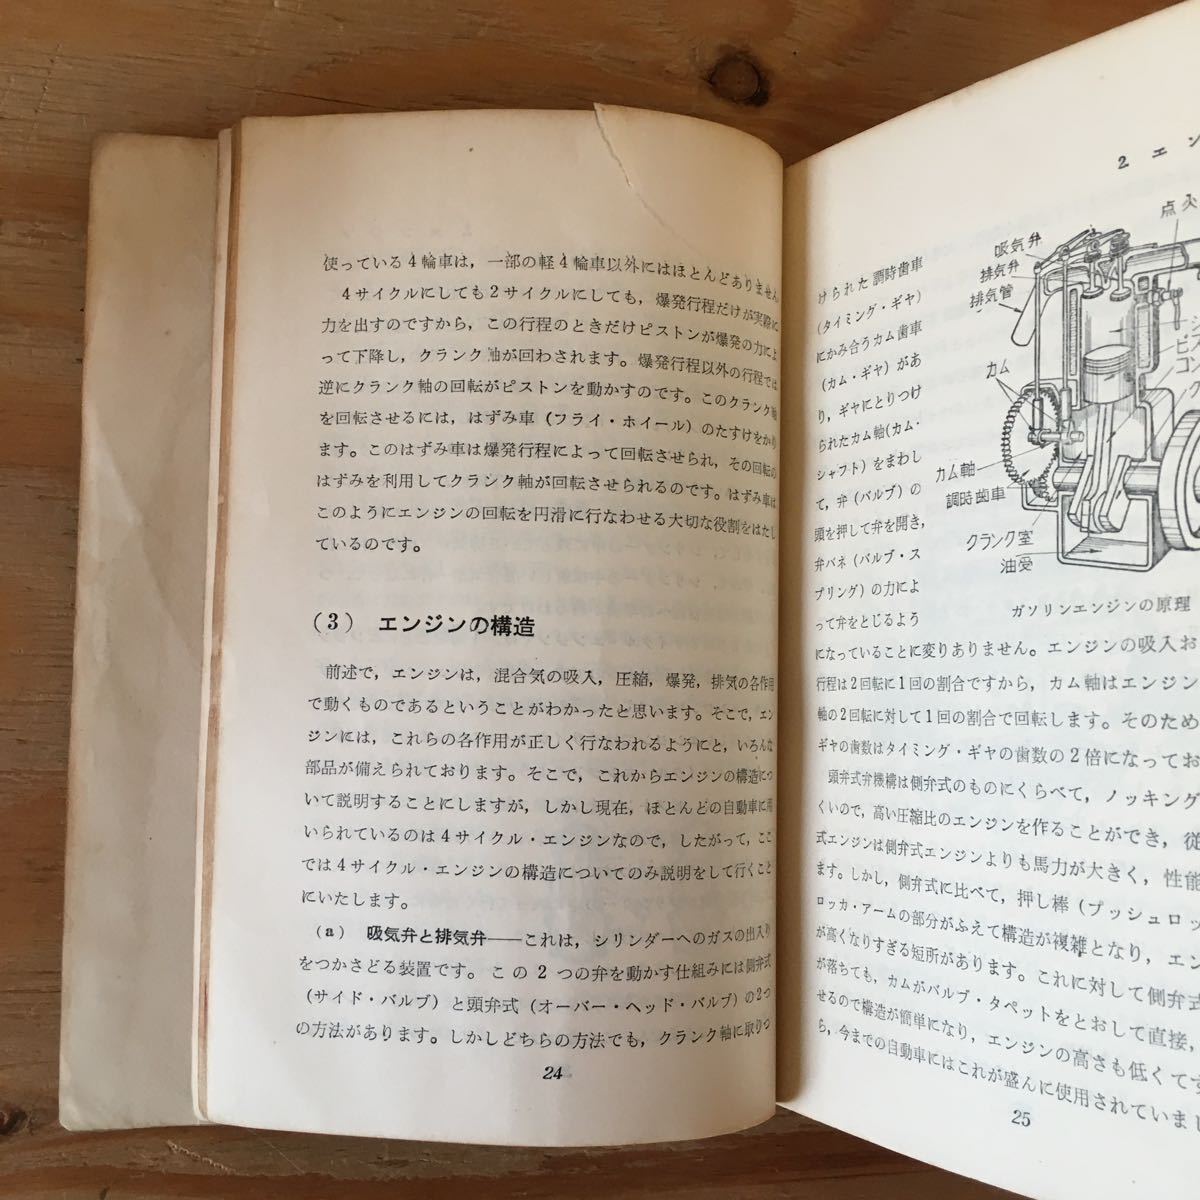 使っている4輪車は，一部の軽4輪車以外にはほとんどありません。
4サイクルにしても2サイクルにしても，爆発行程だけが実際に
力を出すのですから，この行程のときだけピストンが爆発の力によ
って下降し，クランク軸が回わされます。爆発行程以外の行程では
逆にクランク軸の回転がピストンを動かすのです。このクランク軸
を回転させるには，はずみ車（フライ・ホイール）のたすけをかり
ます。このはずみ車は爆発行程によって回転させられ，その回転の
はずみを利用してクランク軸が回転させられるのです。はずみ車は
このようにエンジンの回転を円滑に行なわせる大切な役割をはたし
ているのです。
(3) エンジンの構造
前述で，エンジンは，混合気の吸入，圧縮，爆発，排気の各作用
で動くものであるということがわかったと思います。そこで，エン
ジンには，これらの各作用が正しく行なわれるようにと，いろんな
部品が備えられております。そこで，これからエンジンの構造につ
いて説明することにしますが，しかし現在，ほとんどの自動車に用
いられているのは4サイクル・エンジンなので，したがって，ここ
では4サイクル・エンジンの構造についてのみ説明をして行くこと
にいたします。
(a) 吸気弁と排気弁――これは，シリンダーへのガスの出入り
をつかさどる装置です。この2つの弁を動かす仕組みには側弁式
（サイド・バルブ）と頭弁式（オーバー・ヘッド・バルブ）の2つ
の方法があります。しかしどちらの方法でも，クランク軸に取りつ
24
2 エン
けられた調時歯車
（タイミング・ギヤ）
にかみ合うカム歯車
（カム・ギヤ）があ
り，ギヤにとりつけ
られたカム軸（カム・
シャフト）をまわし
て，弁（バルブ）の
頭を押して弁を開き，
弁バネ（バルブ・ス
プリング）の力によ
って弁をとじるよう
点火
吸気弁
排気弁
排気管
カム
カム軸
調時歯車
クランク室
油受
シ
ピス
コン
ガソリンエンジンの原理
になっていることに変りありません。エンジンの吸入お
行程は2回転に1回の割合ですから，カム軸はエンジン
軸の2回転に対して1回の割合で回転します。そのため
ギヤの歯数はタイミング・ギヤの歯数の2倍になってお
頭弁式弁機構は側弁式のものにくらべて，ノッキング
くいので，高い圧縮比のエンジンを作ることができ，従
式エンジンは側弁式エンジンよりも馬力が大きく，性能
ます。しかし，側弁式に比べて，押し棒（プッシュロッ
ロッカ・アームの部分がふえて構造が複雑となり，エン
が高くなりすぎる短所があります。これに対して側弁式
が落ちても，カムがバルブ・タペットをとおして直接，
せるので構造が簡単になり，エンジンの高さも低くてす
ら，今までの自動車にはこれが盛んに使用されていまし
25